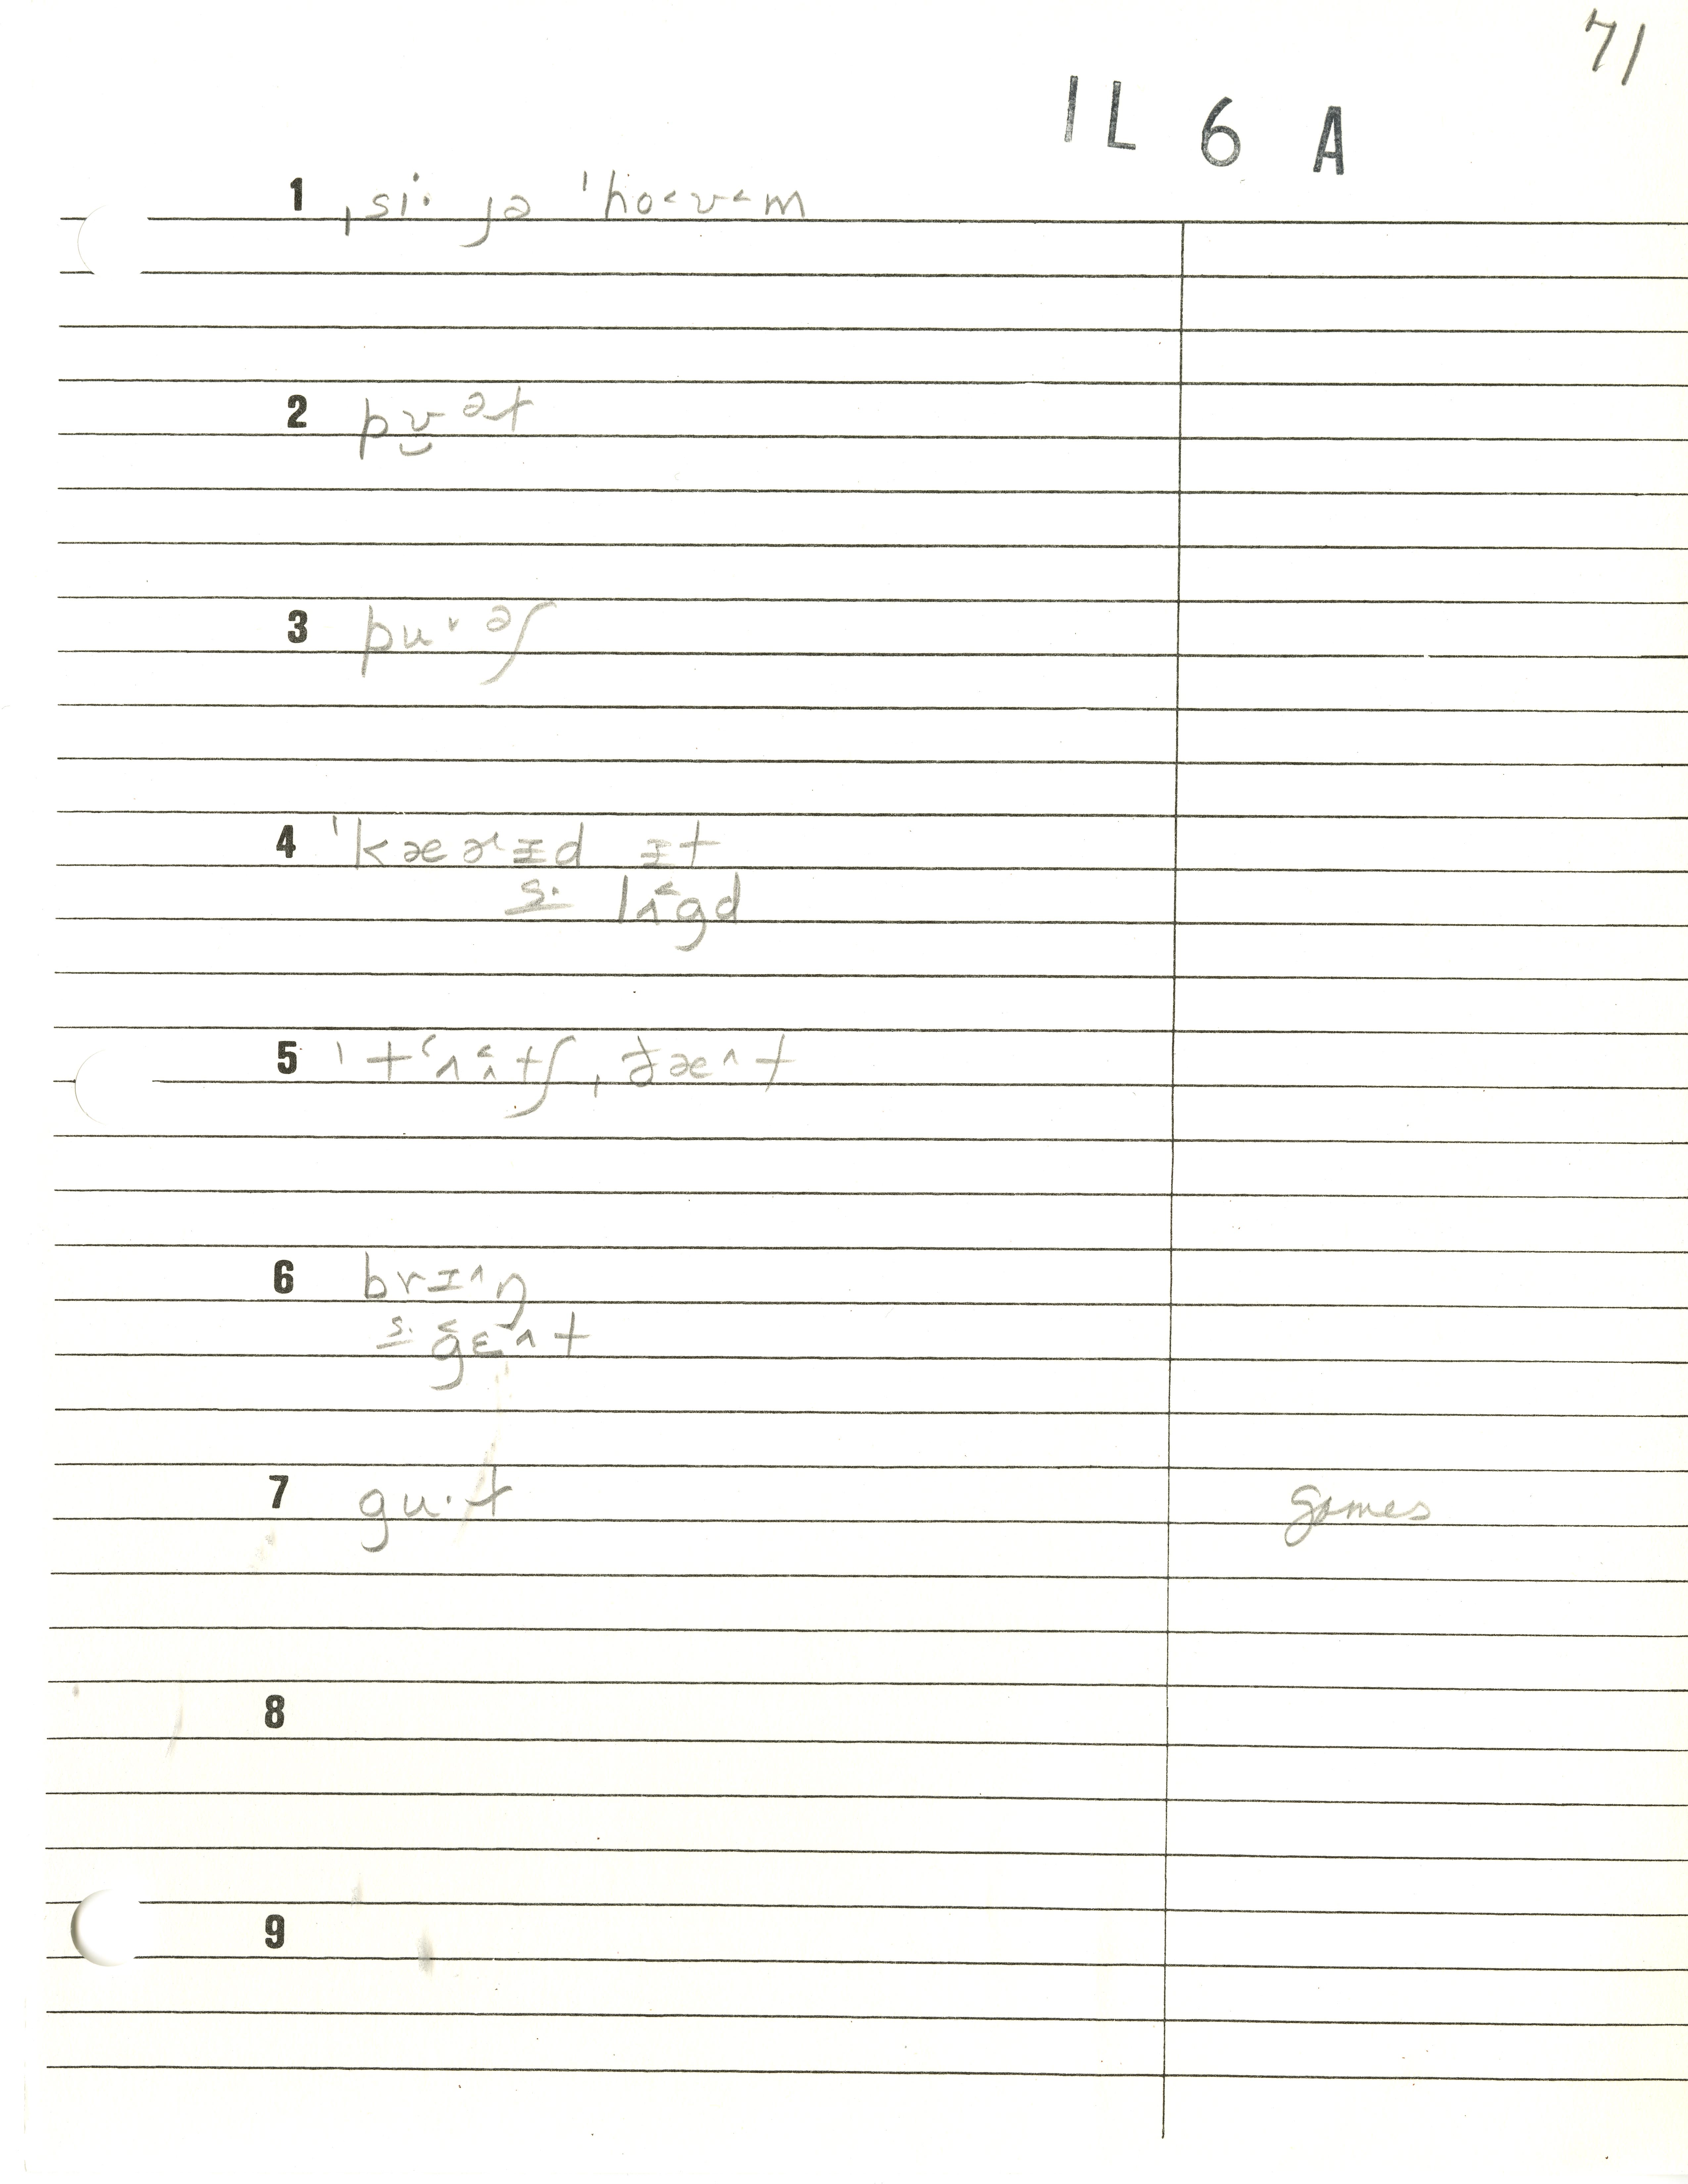 71
IL 6 A
1 ˌsi· jə ˈho˂ʊ˂m
2 pʊ̯ət
3 pu˅əʃ
4 ˈkæɚɪd ɪt
s. lʌ˂gd
5 ˈtʻʌ˂tʃ ˌðæ˄t
6 brɪ˄ŋ
s. g˂ɛ˄t
7 gu·t games
8
9